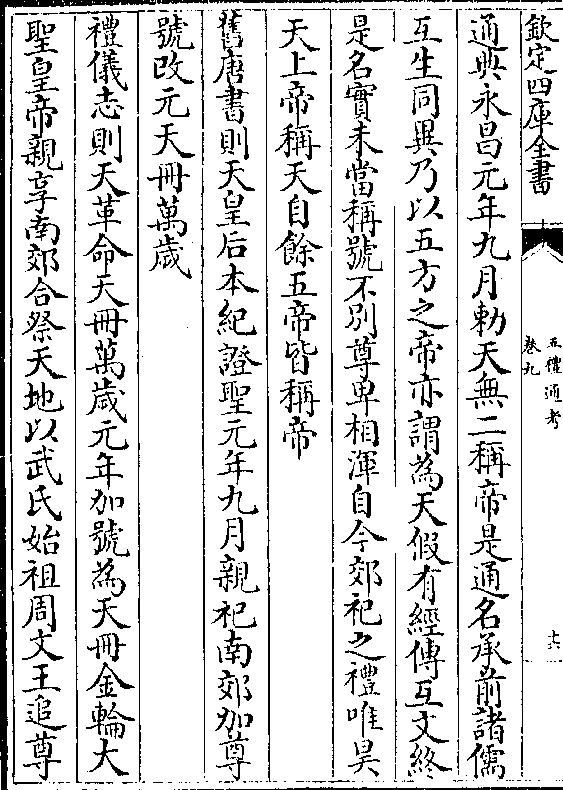 欽定四庫全書
五禮通考
卷九
十六
通典永昌元年九月勅天無二稱帝是通名承前諸儒
互生同異乃以五方之帝亦謂為天假有經傳互文終
是名實未當稱號不別尊卑相渾自今郊祀之禮唯昊
天上帝稱天自餘五帝皆稱帝
舊唐書則天皇后本紀證聖元年九月親祀南郊加尊
號改元天冊萬歲
禮儀志則天革命天冊萬歲元年加號為天冊金輪大
聖皇帝親享南郊合祭天地以武氏始祖周文王追尊